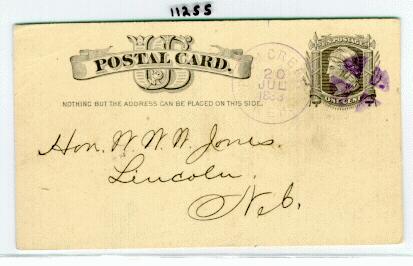 11255
U S
POSTAL CARD.
NOTHING BUT THE ADDRESS CAN BE PLACED ON THIS SIDE.
CREEK
20
JUL
1883
NEB
U.S. POSTAGE
ONE CENT
Hon. W. W. W. Jones.
Lincoln.
Neb.